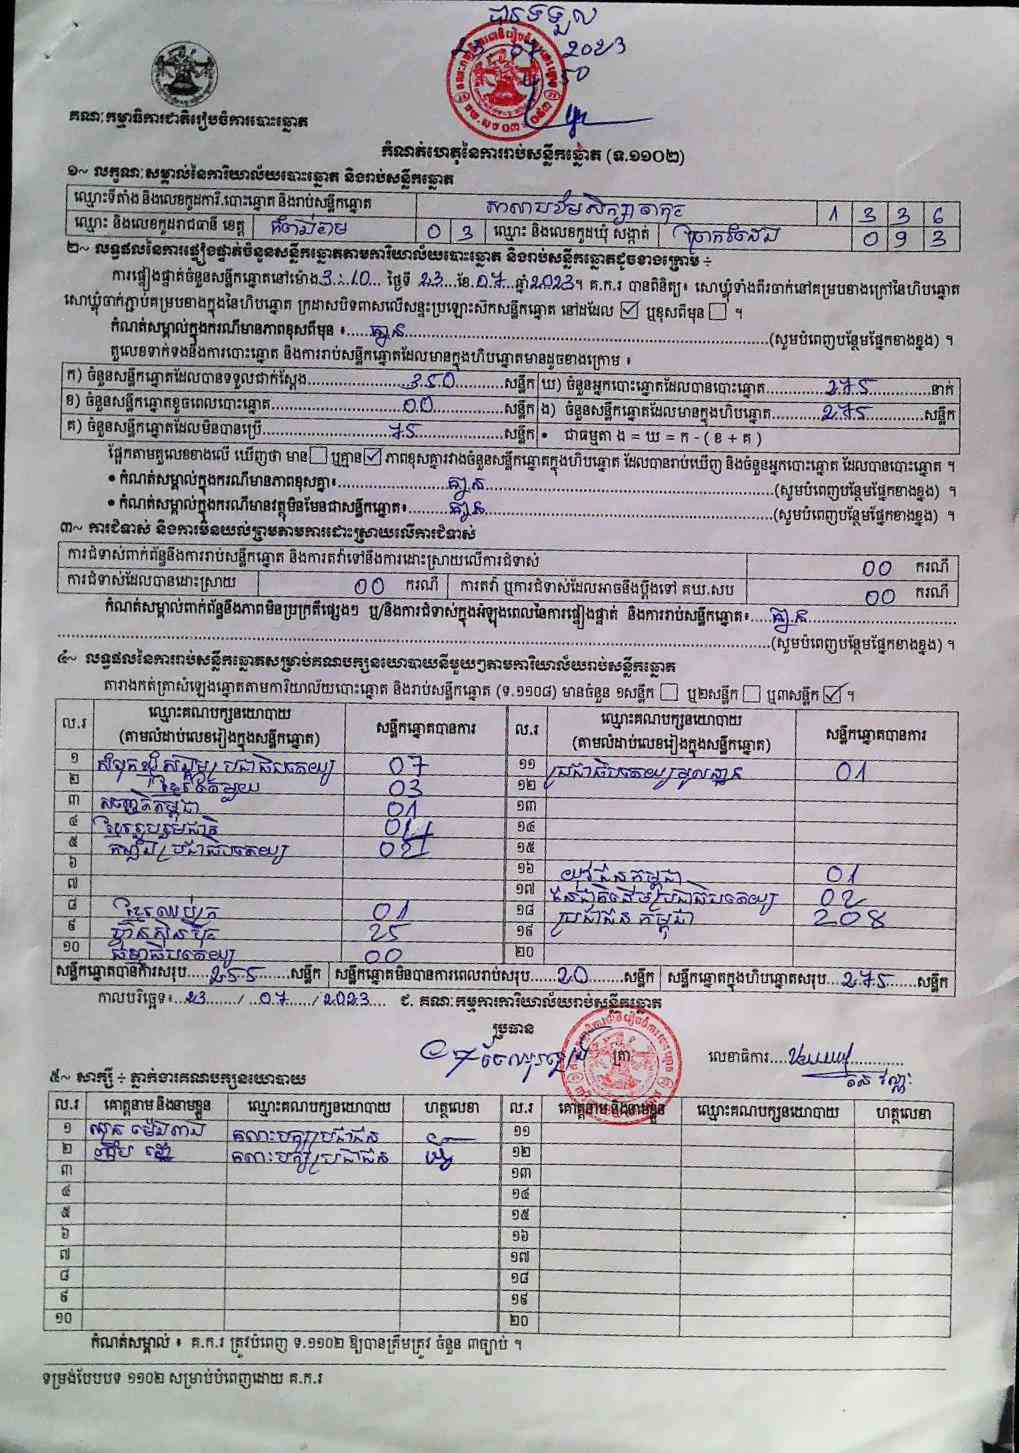 បានទទួល
2023
50
គណៈកម្មាធិការជាតិរៀបចំការបោះឆ្នោត
កំណត់ហេតុនៃការរាប់សន្លឹកឆ្នោត (ទ.១១០២)
១~ លក្ខណៈសម្គាល់នៃការិយាល័យបោះឆ្នោត និងរាប់សន្លឹកឆ្នោត
ឈ្មោះទីតាំង និងលេខកូដការិ.បោះឆ្នោត និងរាប់សន្លឹកឆ្នោត សាលាបឋមសិក្សា 1 3 3 6
ឈ្មោះ និងលេខកូដរាជធានី ខេត្ត កំពង់ចាម 0 3 ឈ្មោះ និងលេខកូដឃុំ សង្កាត់ 0 9 3
២~ លទ្ធផលនៃការផ្ទៀងផ្ទាត់ចំនួនសន្លឹកឆ្នោតតាមការិយាល័យបោះឆ្នោត និងរាប់សន្លឹកឆ្នោតដូចខាងក្រោម ÷
ការផ្ទៀងផ្ទាត់ចំនួនសន្លឹកឆ្នោតនៅម៉ោង 3:10 ថ្ងៃទី 23 ខែ 07 ឆ្នាំ 2023។ គ.ក.រ បានពិនិត្យ៖ សោឃ្លុំទាំងពីរចាក់នៅគម្របខាងក្រៅនៃហិបឆ្នោត
សោឃ្លុំចាក់ភ្ជាប់គម្របខាងក្នុងនៃហិបឆ្នោត ក្រដាសបិទពាសលើសន្ទះប្រឡោះស៊កសន្លឹកឆ្នោត នៅដដែល ☑ ឬខុសពីមុន ☐ ។
កំណត់សម្គាល់ក្នុងករណីមានភាពខុសពីមុន ៖ គ្មាន (សូមបំពេញបន្ថែមផ្នែកខាងខ្នង) ។
តួលេខទាក់ទងនឹងការបោះឆ្នោត និងការរាប់សន្លឹកឆ្នោតដែលមានក្នុងហិបឆ្នោតមានដូចខាងក្រោម ៖
ក) ចំនួនសន្លឹកឆ្នោតដែលបានទទួលជាក់ស្តែង 350 សន្លឹក ឃ) ចំនួនអ្នកបោះឆ្នោតដែលបានបោះឆ្នោត 275 នាក់
ខ) ចំនួនសន្លឹកឆ្នោតខូចពេលបោះឆ្នោត 00 សន្លឹក ង) ចំនួនសន្លឹកឆ្នោតដែលមានក្នុងហិបឆ្នោត 275 សន្លឹក
គ) ចំនួនសន្លឹកឆ្នោតដែលមិនបានប្រើ 75 សន្លឹក • ជាធម្មតា ង = ឃ = ក - ( ខ + គ )
ផ្អែកតាមតួលេខខាងលើ ឃើញថា មាន ☐ ឬគ្មាន ☑ ភាពខុសគ្នារវាងចំនួនសន្លឹកឆ្នោតក្នុងហិបឆ្នោត ដែលបានរាប់ឃើញ និងចំនួនអ្នកបោះឆ្នោត ដែលបានបោះឆ្នោត ។
• កំណត់សម្គាល់ក្នុងករណីមានភាពខុសគ្នា៖ គ្មាន (សូមបំពេញបន្ថែមផ្នែកខាងខ្នង) ។
• កំណត់សម្គាល់ក្នុងករណីមានវត្ថុមិនមែនជាសន្លឹកឆ្នោត៖ គ្មាន (សូមបំពេញបន្ថែមផ្នែកខាងខ្នង) ។
៣~ ការជំទាស់ និងការមិនយល់ព្រមតាមការដោះស្រាយលើការជំទាស់
ការជំទាស់ពាក់ព័ន្ធនឹងការរាប់សន្លឹកឆ្នោត និងការតវ៉ាទៅនឹងការដោះស្រាយលើការជំទាស់ 00 ករណី
ការជំទាស់ដែលបានដោះស្រាយ 00 ករណី ការតវ៉ា ឬការជំទាស់ដែលអាចនឹងប្តឹងទៅ គឃ.សប 00 ករណី
កំណត់សម្គាល់ពាក់ព័ន្ធនឹងភាពមិនប្រក្រតីផ្សេងៗ ឬ/និងការជំទាស់ក្នុងអំឡុងពេលនៃការផ្ទៀងផ្ទាត់ និងការរាប់សន្លឹកឆ្នោត៖ គ្មាន
(សូមបំពេញបន្ថែមផ្នែកខាងខ្នង) ។
៤~ លទ្ធផលនៃការរាប់សន្លឹកឆ្នោតសម្រាប់គណបក្សនយោបាយនីមួយៗតាមការិយាល័យរាប់សន្លឹកឆ្នោត
តារាងកត់ត្រាសំឡេងឆ្នោតតាមការិយាល័យបោះឆ្នោត និងរាប់សន្លឹកឆ្នោត (ទ.១១០៨) មានចំនួន ១សន្លឹក ☐ ឬ២សន្លឹក ☐ ឬ៣សន្លឹក ☑ ។
ល.រ ឈ្មោះគណបក្សនយោបាយ (តាមលំដាប់លេខរៀងក្នុងសន្លឹកឆ្នោត) សន្លឹកឆ្នោតបានការ ល.រ ឈ្មោះគណបក្សនយោបាយ (តាមលំដាប់លេខរៀងក្នុងសន្លឹកឆ្នោត) សន្លឹកឆ្នោតបានការ
១ សំបុកឃ្មុំសង្គមប្រជាធិបតេយ្យ 07 ១១ ប្រជាធិបតេយ្យមូលដ្ឋាន 01
២ ខ្មែរតែមួយ 03 ១២
៣ សញ្ជាតិកម្ពុជា 01 ១៣
៤ ខ្មែររួបរួមជាតិ ១៤
៥ កម្លាំងប្រជាធិបតេយ្យ ១៥
៦ ១៦ យុវជនកម្ពុជា 01
៧ ១៧ ជនជាតិដើមប្រជាធិបតេយ្យ 02
៨ ខ្មែរឈប់ក្រ 01 ១៨ ប្រជាជនកម្ពុជា 208
៩ ហ្វ៊ុនស៊ិនប៉ិច 25 ១៩
១០ ធម្មាធិបតេយ្យ 00 ២០
សន្លឹកឆ្នោតបានការសរុប 255 សន្លឹក សន្លឹកឆ្នោតមិនបានការពេលរាប់សរុប 20 សន្លឹក សន្លឹកឆ្នោតក្នុងហិបឆ្នោតសរុប 275 សន្លឹក
កាលបរិច្ឆេទ៖ 23 / 07 / 2023 ជ. គណៈកម្មការការិយាល័យរាប់សន្លឹកឆ្នោត
ប្រធាន
ត្រា លេខាធិការ
៥~ សាក្សី ÷ ភ្នាក់ងារគណបក្សនយោបាយ
ល.រ គោត្តនាម និងនាមខ្លួន ឈ្មោះគណបក្សនយោបាយ ហត្ថលេខា ល.រ គោត្តនាម និងនាមខ្លួន ឈ្មោះគណបក្សនយោបាយ ហត្ថលេខា
១ គណបក្សប្រជាជន ១១
២ គណបក្សប្រជាជន ១២
៣ ១៣
៤ ១៤
៥ ១៥
៦ ១៦
៧ ១៧
៨ ១៨
៩ ១៩
១០ ២០
កំណត់សម្គាល់ ៖ គ.ក.រ ត្រូវបំពេញ ទ.១១០២ ឱ្យបានត្រឹមត្រូវ ចំនួន ៣ច្បាប់ ។
ទម្រង់បែបបទ ១១០២ សម្រាប់បំពេញដោយ គ.ក.រ